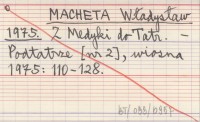 MACHETA Władysław
1975. Z Medyki do Tatr. –
Podtatrze [nr 2], wiosna
1975: 110-128.